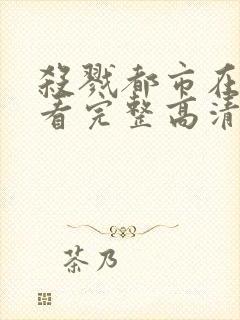 殺戮都市在
看完整高清
茶乃